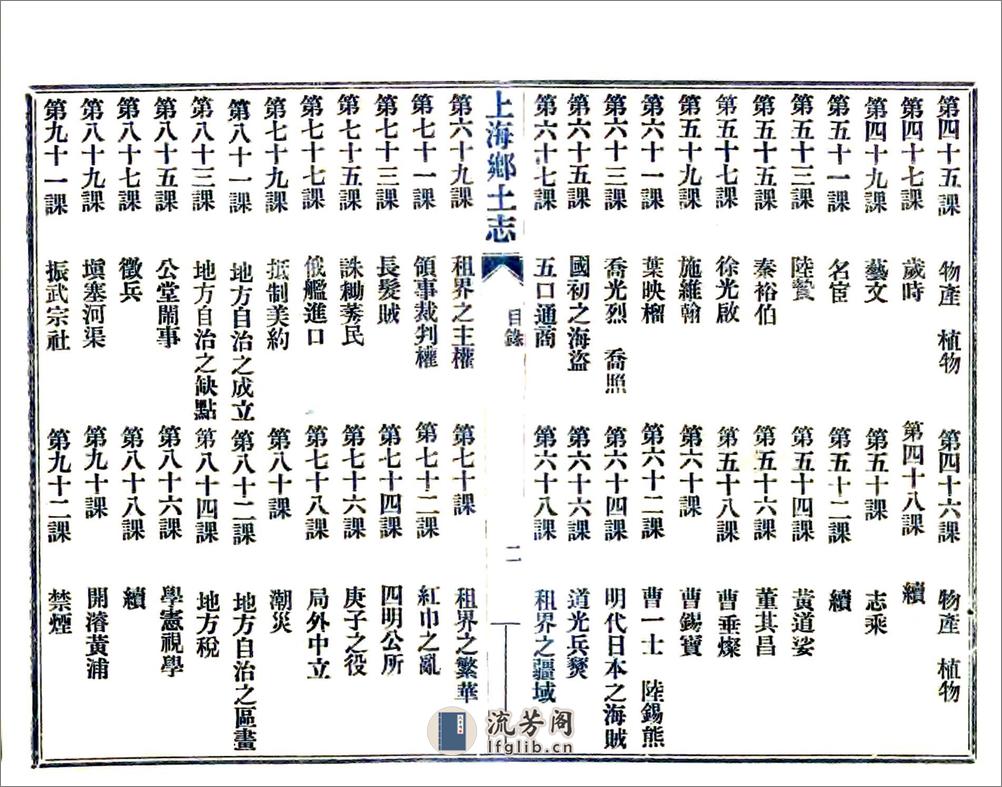 第四十五課　物產　植物　第四十六課　物產　植物
第四十七課　歲時　第四十八課　續
第四十九課　藝文　第五十課　志乘
第五十一課　名宦　第五十二課　續
第五十三課　陸贄　第五十四課　黃道婆
第五十五課　秦裕伯　第五十六課　董其昌
第五十七課　徐光啟　第五十八課　曹垂燦
第五十九課　施維翰　第六十課　曹錫寶
第六十一課　葉映榴　第六十二課　曹一士　陸錫熊
第六十三課　喬光烈　喬照　第六十四課　明代日本之海賊
第六十五課　國初之海盜　第六十六課　道光兵燹
第六十七課　五口通商　第六十八課　租界之疆域
上海鄉土志　目錄　二
第六十九課　租界之主權　第七十課　租界之繁華
第七十一課　領事裁判權　第七十二課　紅巾之亂
第七十三課　長髮賊　第七十四課　四明公所
第七十五課　誅耡莠民　第七十六課　庚子之役
第七十七課　俄艦進口　第七十八課　局外中立
第七十九課　抵制美約　第八十課　潮災
第八十一課　地方自治之成立　第八十二課　地方自治之區畫
第八十三課　地方自治之缺點　第八十四課　地方稅
第八十五課　公堂鬧事　第八十六課　學憲視學
第八十七課　徵兵　第八十八課　續
第八十九課　塡塞河渠　第九十課　開濬黃浦
第九十一課　振武宗社　第九十二課　禁煙
流芳阁
lfglib.cn